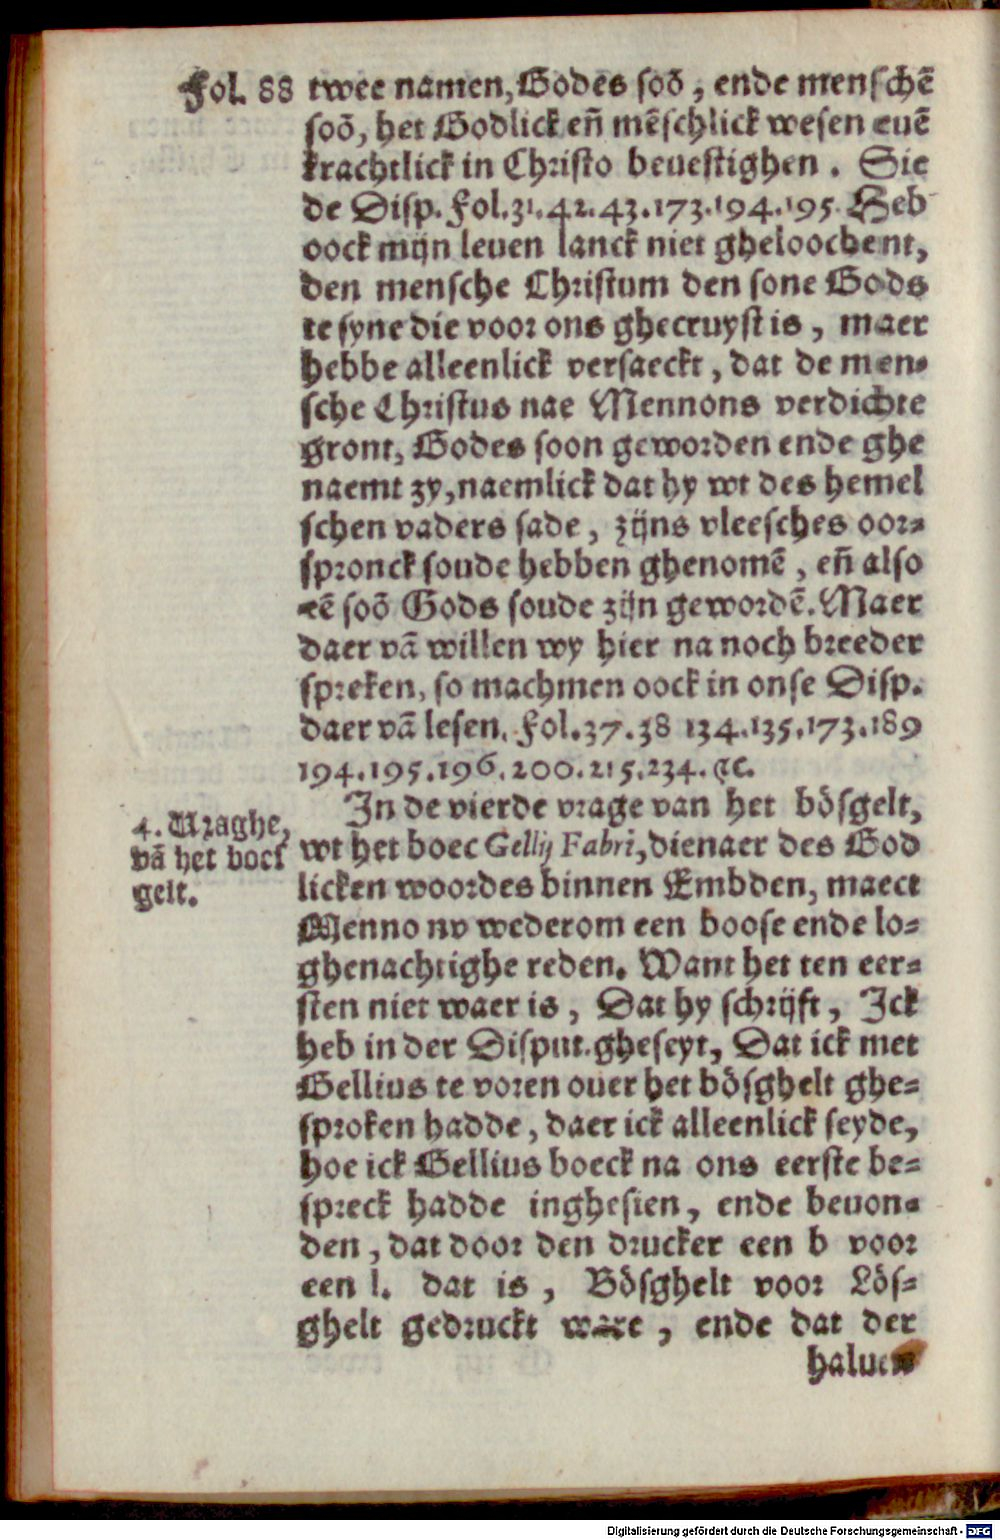 Fol. 88 twee namen, Godes soō, ende menschē
soō, het Godlick eñ mēschlick wesen euē
krachtlick in Christo beuestighen. Sie
de Disp. Fol. 31. 42. 43. 173. 194. 195. Heb
oock mijn leuen lanck niet gheloochent,
den mensche Christum den sone Gods
te syne die voor ons ghecruyst is, maer
hebbe alleenlick versaeckt, dat de men-
sche Christus nae Mennons verdichte
gront, Godes soon geworden ende ghe
naemt zy, naemlick dat hy wt des hemel
schen vaders sade, zijns vleesches oor-
spronck soude hebben ghenomē, eñ also
eē soō Gods soude zijn gewordē. Maer
daer vā willen wy hier na noch breeder
spreken, so machmen oock in onse Disp.
daer vā lesen. Fol. 37. 38 134. 135. 173. 189
194. 195. 196. 200. 215. 234. ꝛc.
In de vierde vrage van het bösgelt,
4. Uraghe,
vā het boes
gelt.
wt het boec Gellij Fabri, dienaer des God
licken woordes binnen Embden, maect
Menno nv wederom een boose ende lo-
ghenachtighe reden. Want het ten eer-
sten niet waer is, Dat hy schrijft, Ick
heb in der Disput. gheseyt, Dat ick met
Gellius te voren ouer het bösghelt ghe-
sproken hadde, daer ick alleenlick seyde,
hoe ick Gellius boeck na ons eerste be-
spreck hadde inghesien, ende beuon-
den, dat door den drucker een b voor
een l. dat is, Bösghelt voor Lös-
ghelt gedruckt ware, ende dat der
haluen
Digitalisierung gefördert durch die Deutsche Forschungsgemeinschaft - DFG